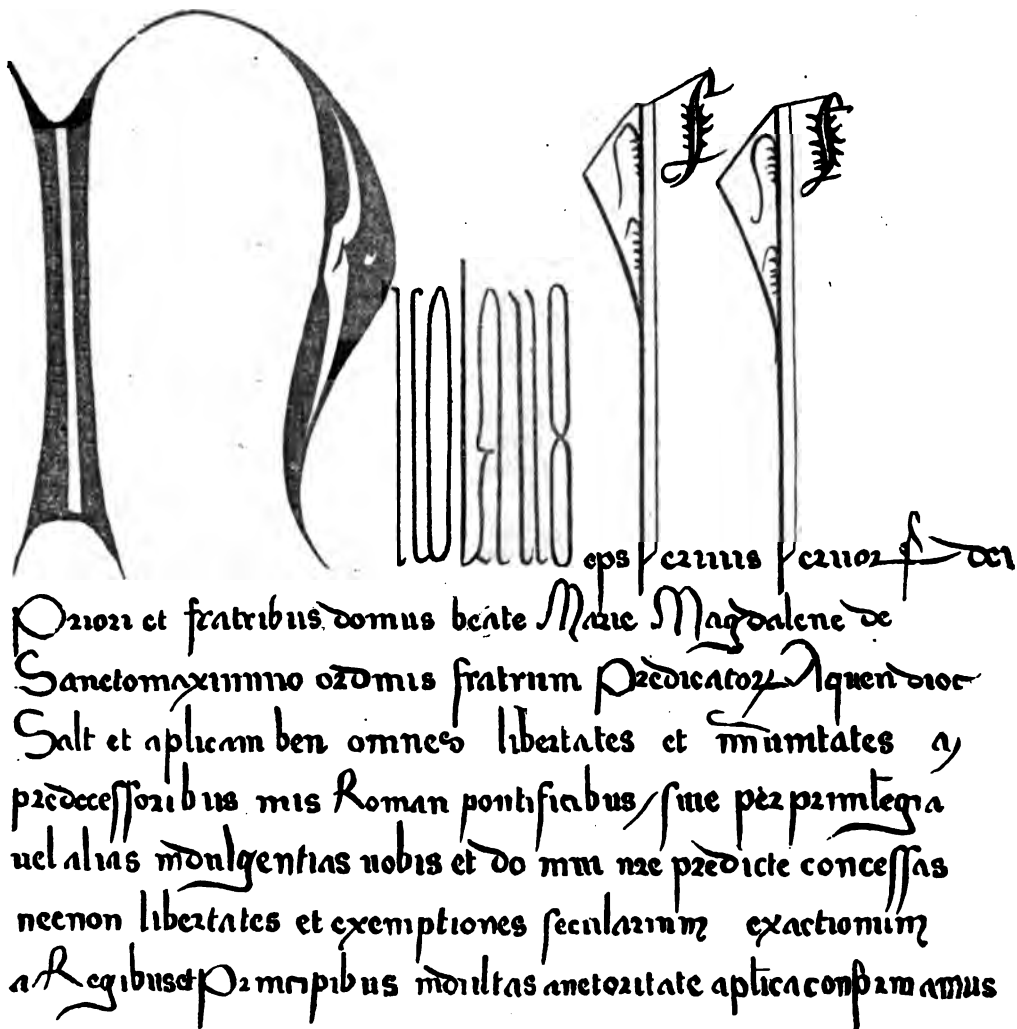 Nicolaus eps seruus seruor dei
Priori et fratribus domus beate Marie Magdalene de
Sanctomaximino ordinis fratrum Predicator Aquen dioc
Salt et aplicam ben omnes libertates et immunitates a
predecessoribus nris Roman pontificibus / siue per priuilegia
uel alias indulgentias uobis et do mui nre predicte concessas
necnon libertates et exemptiones secularium exactionum
a Regibus et Principibus indultas auctoritate aplica confirmamus